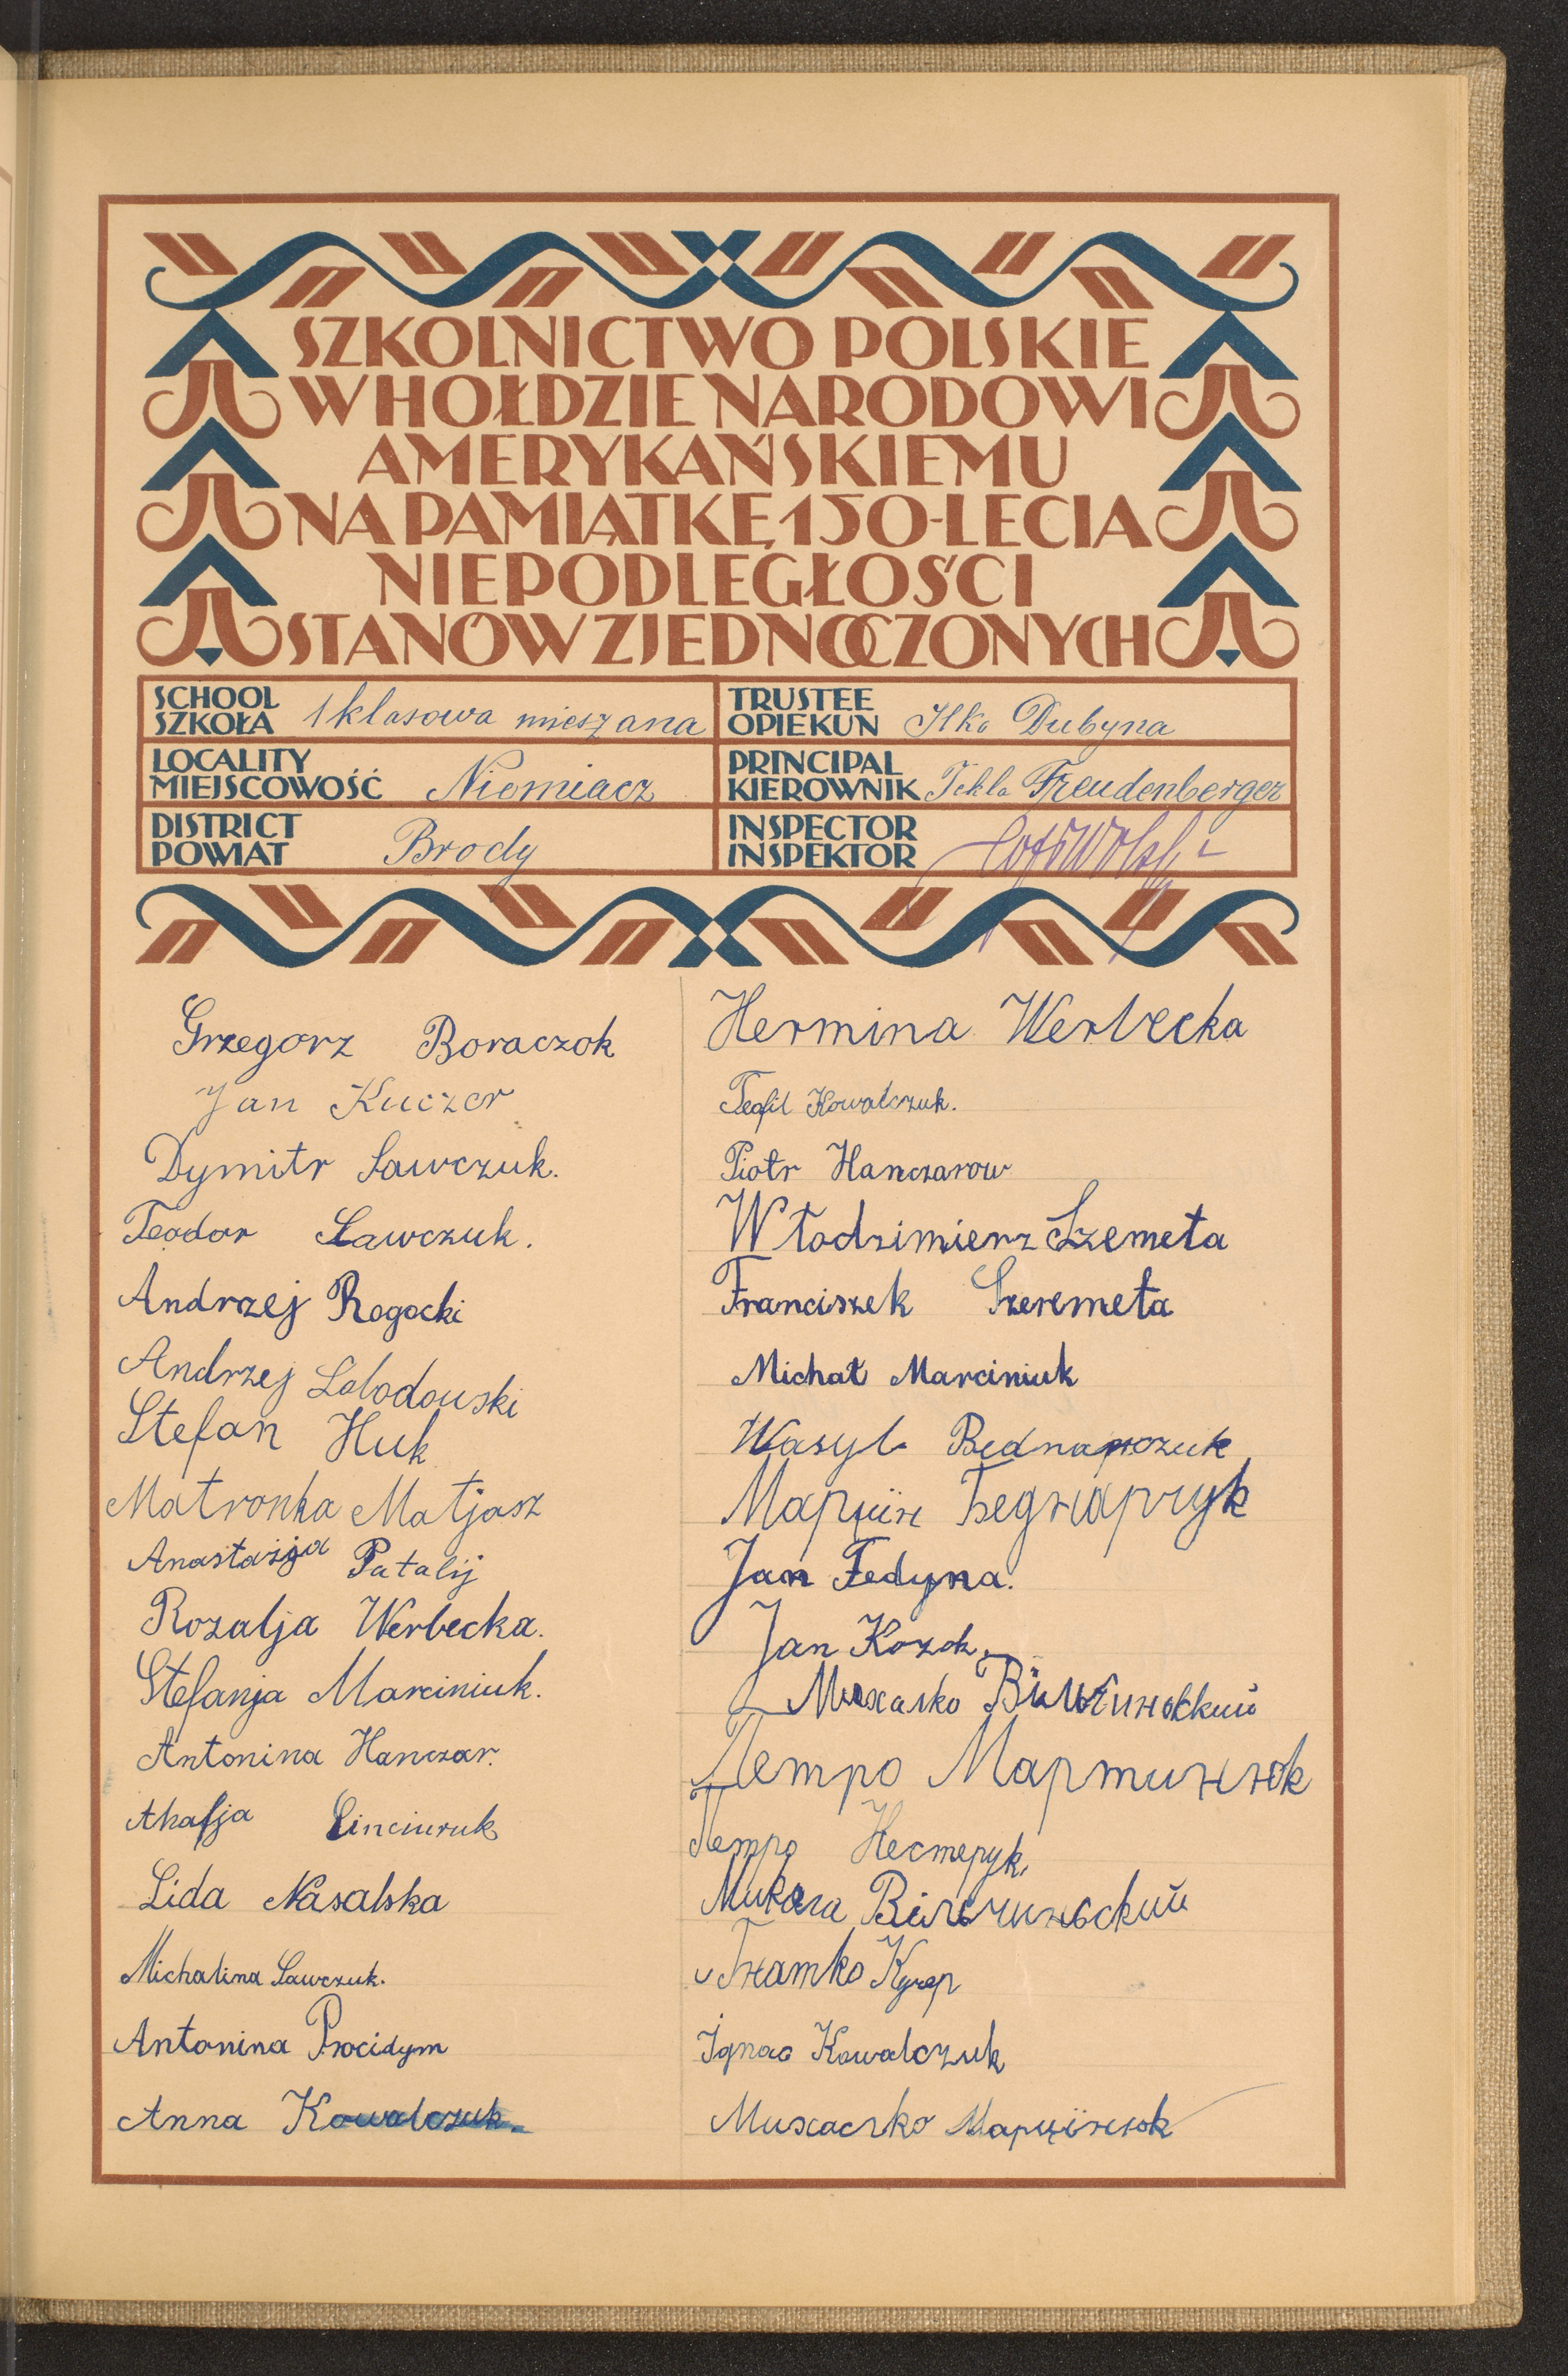 SZKOLNICTWO POLSKIE
W HOŁDZIE NARODOWI
AMERYKAŃSKIEMU
NA PAMIĄTKĘ 150-LECIA
NIEPODLEGŁOŚCI
STANÓW ZJEDNOCZONYCH
SCHOOL
SZKOŁA 1 klasowa mieszana
TRUSTEE
OPIEKUN Ilko Dubyna
LOCALITY
MIEJSCOWOŚĆ Niemiacz
PRINCIPAL
KIEROWNIK Tekla Freudenberger
DISTRICT
POWIAT Brody
INSPECTOR
INSPEKTOR
Grzegorz Boraczok
Jan Kuczer
Dymitr Sawczuk.
Teodor Sawczuk.
Andrzej Rogocki
Andrzej Łobodowski
Stefan Huk
Matronka Matjasz
Anastazja Patalij
Rozalja Werbecka.
Stefanja Marciniuk.
Antonina Hanczar.
Akafja
Lida Nasalska
Michalina Sawczuk.
Antonina Procidym
Anna Kowalczuk.
Hermina Werbecka
Teofil Kowalczuk.
Piotr Hanczarow
Włodzimierz Szemeta
Franciszek Szeremeta
Michał Marciniuk
Wasyl Bednarczuk
Марціїн Беднарчук
Jan Fedyna.
Jan Kozok.
Михалко Вільчиньский
Петро Мартинюк
Петро Нестерук
Микола Вільчинський
Гнатко Кучер
Ignac Kowalczuk
Михасько Марцїнюк